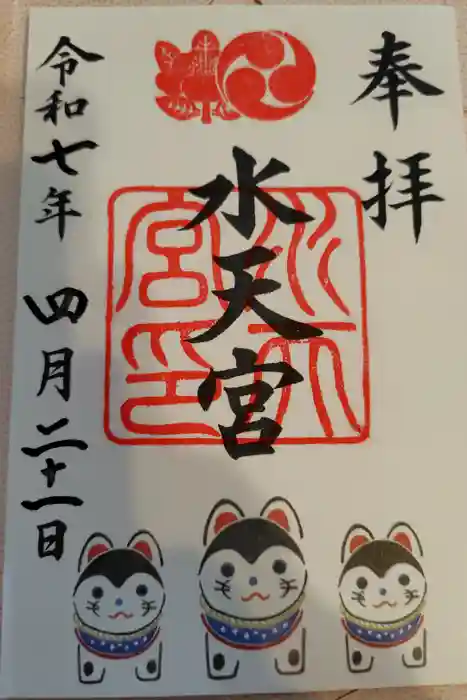 奉拝
水天宮
水天宮印
令和七年
四月二十一日